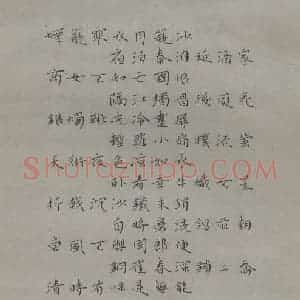 煙籠寒水月籠沙
夜泊秦淮近酒家
商女不知亡國恨
隔江猶唱後庭花
銀燭秋光冷畫屏
輕羅小扇撲流螢
天街夜色涼如水
卧看牽牛織女星
折戟沉沙鐵未銷
自將磨洗認前朝
東風不與周郎便
銅雀春深鎖二喬
清時有味是無能